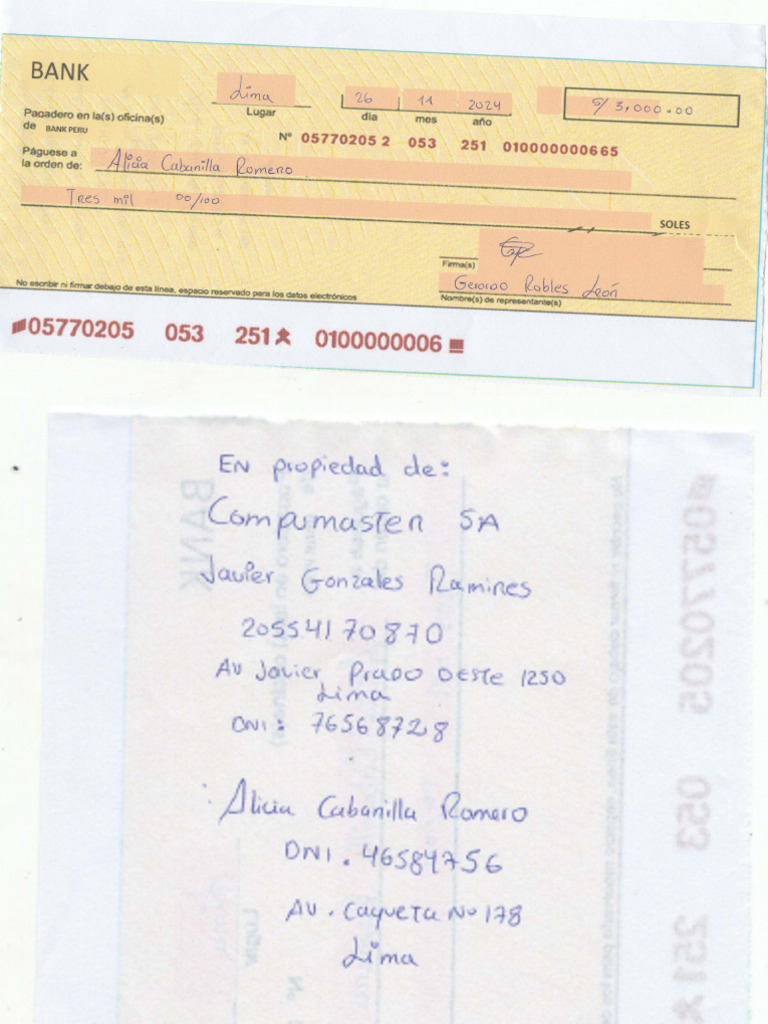 BANK
Lima 26 11 2024 S/ 3,000.00
Lugar dia mes año
Pagadero en la(s) oficina(s)
de BANK PERU
Nº 05770205 2 053 251 010000000665
Páguese a
la orden de: Alicia Cabanilla Romero
Tres mil 00/100
SOLES
Firma(s)
Gerardo Robles León
Nombre(s) de representante(s)
No escribir ni firmar debajo de esta línea, espacio reservado para los datos electrónicos
05770205 053 251 0100000006
EN propiedad de:
Compumaster SA
Javier Gonzales Ramires
20554170870
AV Javier Prado Oeste 1250
Lima
DNI: 76568728
Alicia Cabanilla Romero
DNI. 46584756
AV. Caqueta Nº 178
Lima